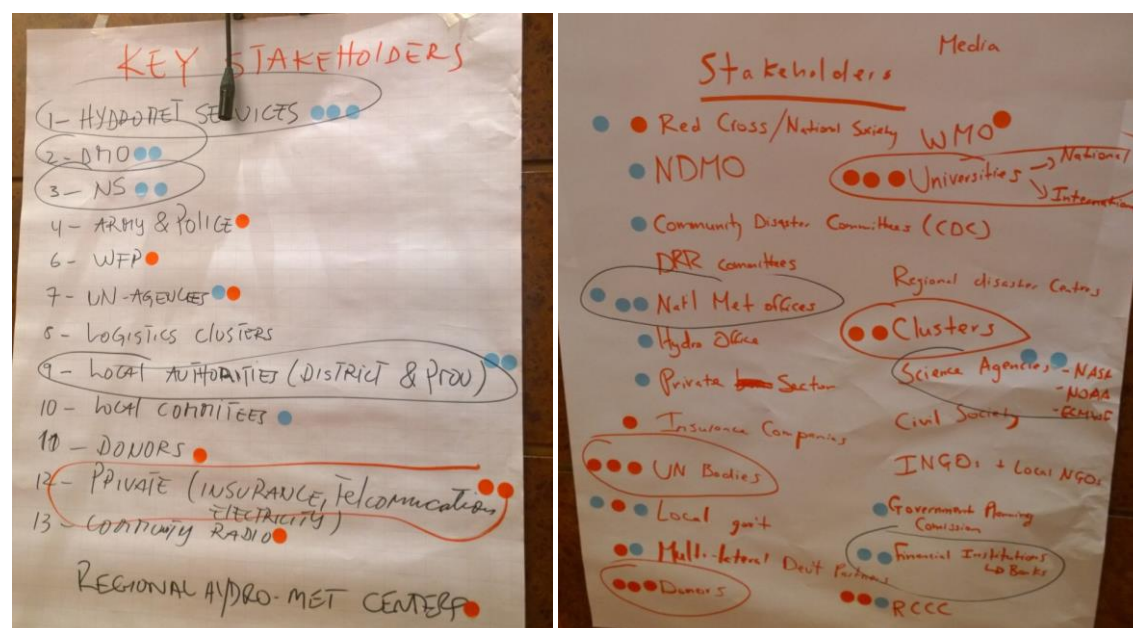 KEY STAKEHOLDERS
1- HYDROMET SERVICES
2- DMO
3- NS
4- ARMY & POLICE
6- WFP
7- UN-AGENCIES
8- LOGISTICS CLUSTERS
9- LOCAL AUTHORITIES (DISTRICT & PROV)
10- LOCAL COMMITEES
11- DONORS
12- PRIVATE (INSURANCE, Telcomucation
ELECTRICITY)
13- COMMUNITY RADIO
REGIONAL HYDRO-MET CENTERS
Media
Stakeholders
Red Cross/National Society
WMO
NDMO
Universities → National
↘ Internation
Community Disaster Committees (CDC)
DRR committees
Regional disaster Centers
Nat'l Met offices
Clusters
Hydro Office
Science Agencies - NASA
- NOAA
- ECMWF
Private Sector
Civil Society
Insurance Companies
INGOs + Local NGOs
UN Bodies
Local gov't
Government Planning
Comission
Multi-lateral Dev't Partners
Financial Institutions
↳ Banks
Donors
RCCC